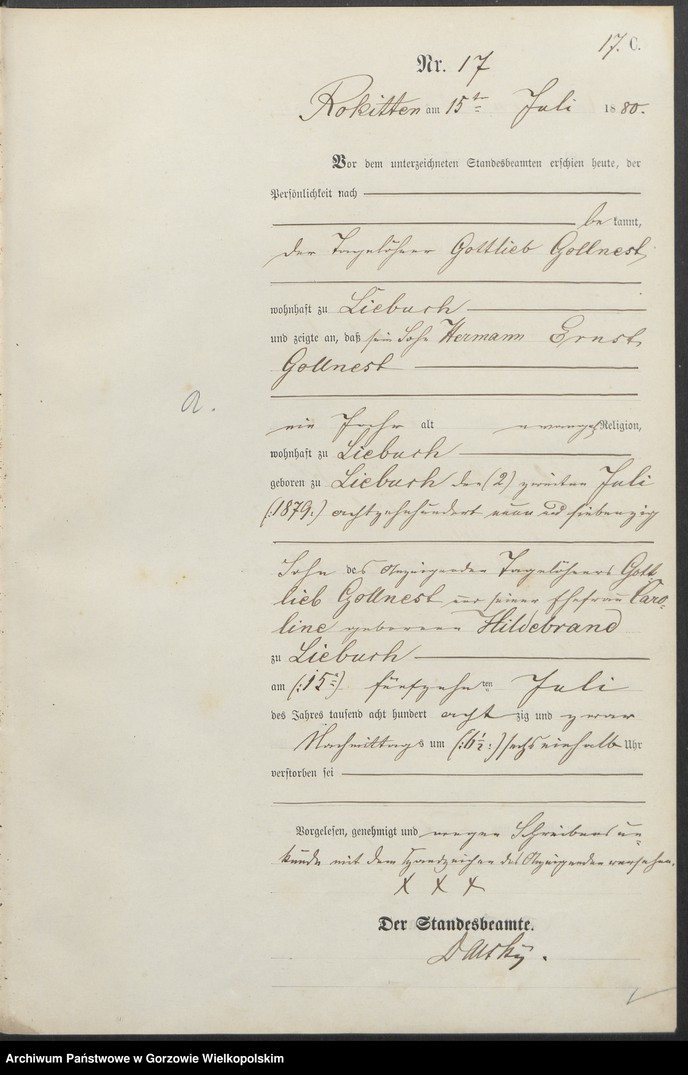 17. C.
Nr. 17
Rokitten am 15ten Juli 1880.
Vor dem unterzeichneten Standesbeamten erschien heute, der
Persönlichkeit nach
be kannt,
der Tagelöhner Gottlieb Gollnest,
wohnhaft zu Liebuch
und zeigte an, daß sein Sohn Hermann Ernst
Gollnest
a.
ein Jahr alt evangel Religion,
wohnhaft zu Liebuch
geboren zu Liebuch den (2) zweiten Juli
(:1879:) achtzehnhundert neun und siebenzig
Sohn des Anzeigenden Tagelöhners Gott
lieb Gollnest und seiner Ehefrau Caro-
line geborenen Hildebrand
zu Liebuch
am (:15:) fünfzehn ten Juli
des Jahres tausend acht hundert acht zig und zwar
Nachmittags um (:6½:) sechs einhalb Uhr
verstorben sei
Vorgelesen, genehmigt und wegen Schreibensun-
kunde mit dem Handzeichen des Anzeigenden versehen.
X X X
Der Standesbeamte.
Archiwum Państwowe w Gorzowie Wielkopolskim